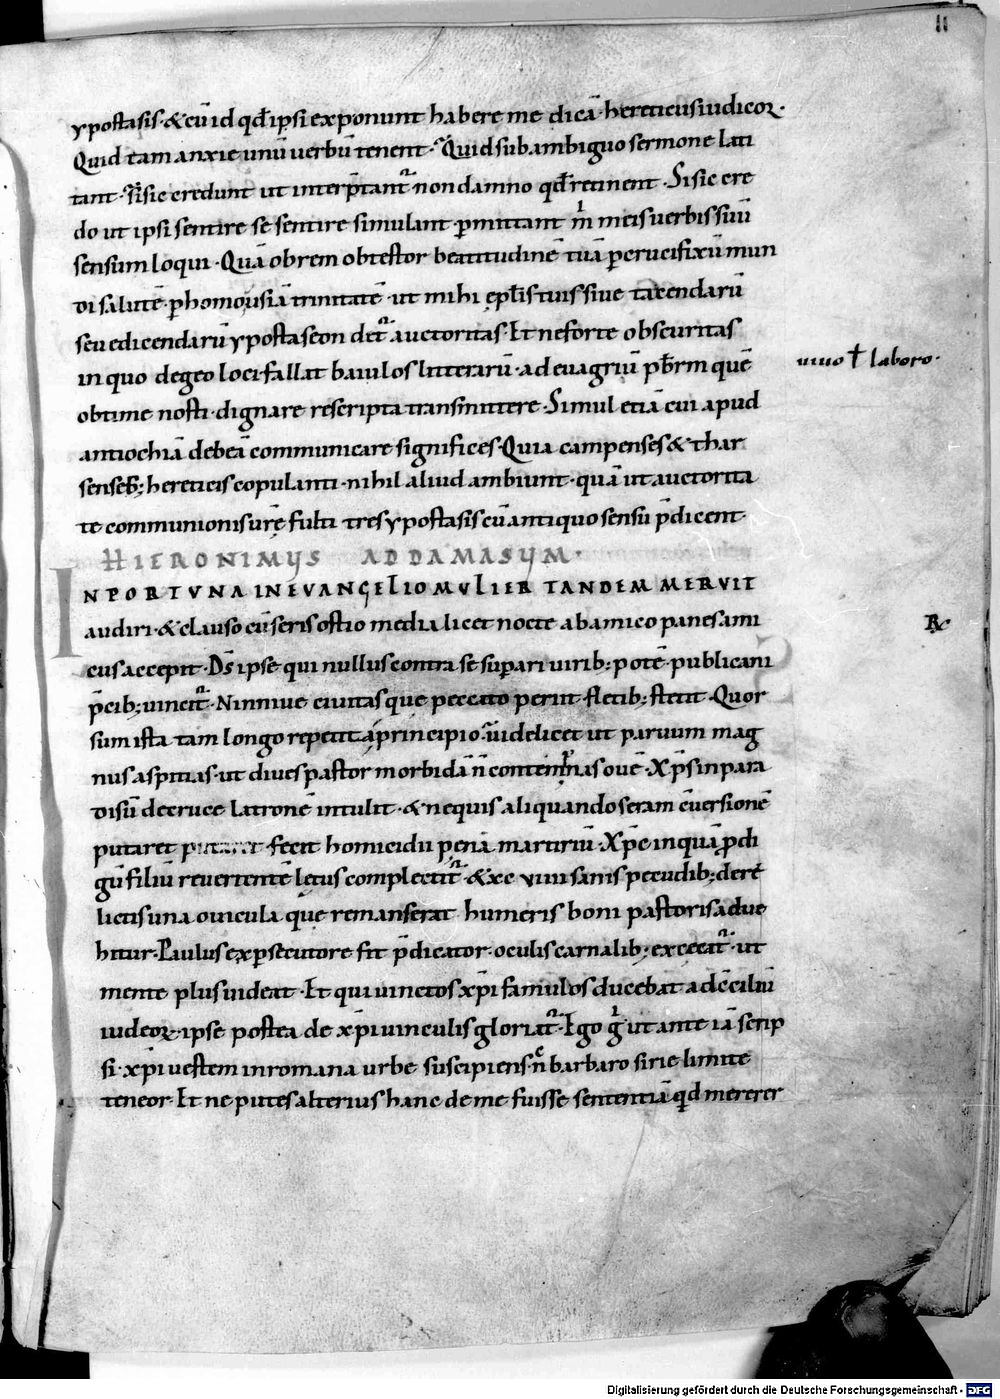 11
ypostasis · & cū id qd̄ ipsi exponunt habere me dicā · hereticus iudicoꝝ ·
Quid tam anxie unū uerbū tenent · Quid sub ambiguo sermone lati
tant · Si sic credunt ut interp̄tant᷑ non damno qd̄ retinent · Si sic cre
do ut ipsi sentire se sentire simulant ꝑmittant m̄ meis uerbis suū
sensum loqui · Quā obrem obtestor beatitudinē tuā per crucifixū mun
di salutē · ꝑ homousiā trinitatē · ut mihi ep̄lis tuis siue tacendarū
seu edicendarū ypostaseon det᷑ auctoritas · Et ne forte obscuritas
in quo dego loci fallat baiulos litterarū · ad euagriū pb̄rm quē
uiuo † laboro ·
obtime nosti · dignare rescripta transmittere · Simul etiā cui apud
antiochiā debeā communicare significes · Quia campenses & thar
senseb; hereticis copulanti · nihil aliud ambiunt · quā ut auctorita
te communionis urę̄ fulti tres ypostasis cū antiquo sensu p̄dicent ·
HIERONIMUS AD DAMASUM ·
INPORTUNA IN EVANGELIO MULIER TANDEM MERUIT
audiri · & clauso cū seris ostio media licet nocte ab amico panes ami
R̄c
cus accepit · Ds̄ ipse qui nullus contra se suꝑari uirib; potē · publicani
p̄cib; uincit᷑ · Niniue ciuitas que peccato periit · fletib; stetit · Quor
sum ista tam longo repetita principio · uidelicet ut paruum mag
nus aspitias · ut diues pastor morbidā n̄ contemnas ouē · Xp̄s in para
disū de cruce latronē intulit · & ne quis aliquando seram c̄uersionē
putaret fecit homicidii penā martiriū · Xp̄c inquā ꝓdi
gū filiū reuertentē lętus complectit᷑ · & xc viiii sanis pecudib; dere
lictis una ouicula quę remanserat humeris boni pastoris adue
hitur · Paulus ex ꝑsecutore fit p̄dicator · oculis carnalib; excecat᷑ · ut
mente plus uideat · Et qui uinctos xp̄i famulos ducebat ad c̄ciliū
iudeoꝝ · ipse postea de xp̄i uinculis gloriat᷑ · Ego g ut ante iā scrip
si · xp̄i uestem in romana urbe suscipiens · n̄ barbaro sirie limite
teneor · Et ne putes alterius hanc de me fuisse sententiā qd mererer
Digitalisierung gefördert durch die Deutsche Forschungsgemeinschaft - DFG